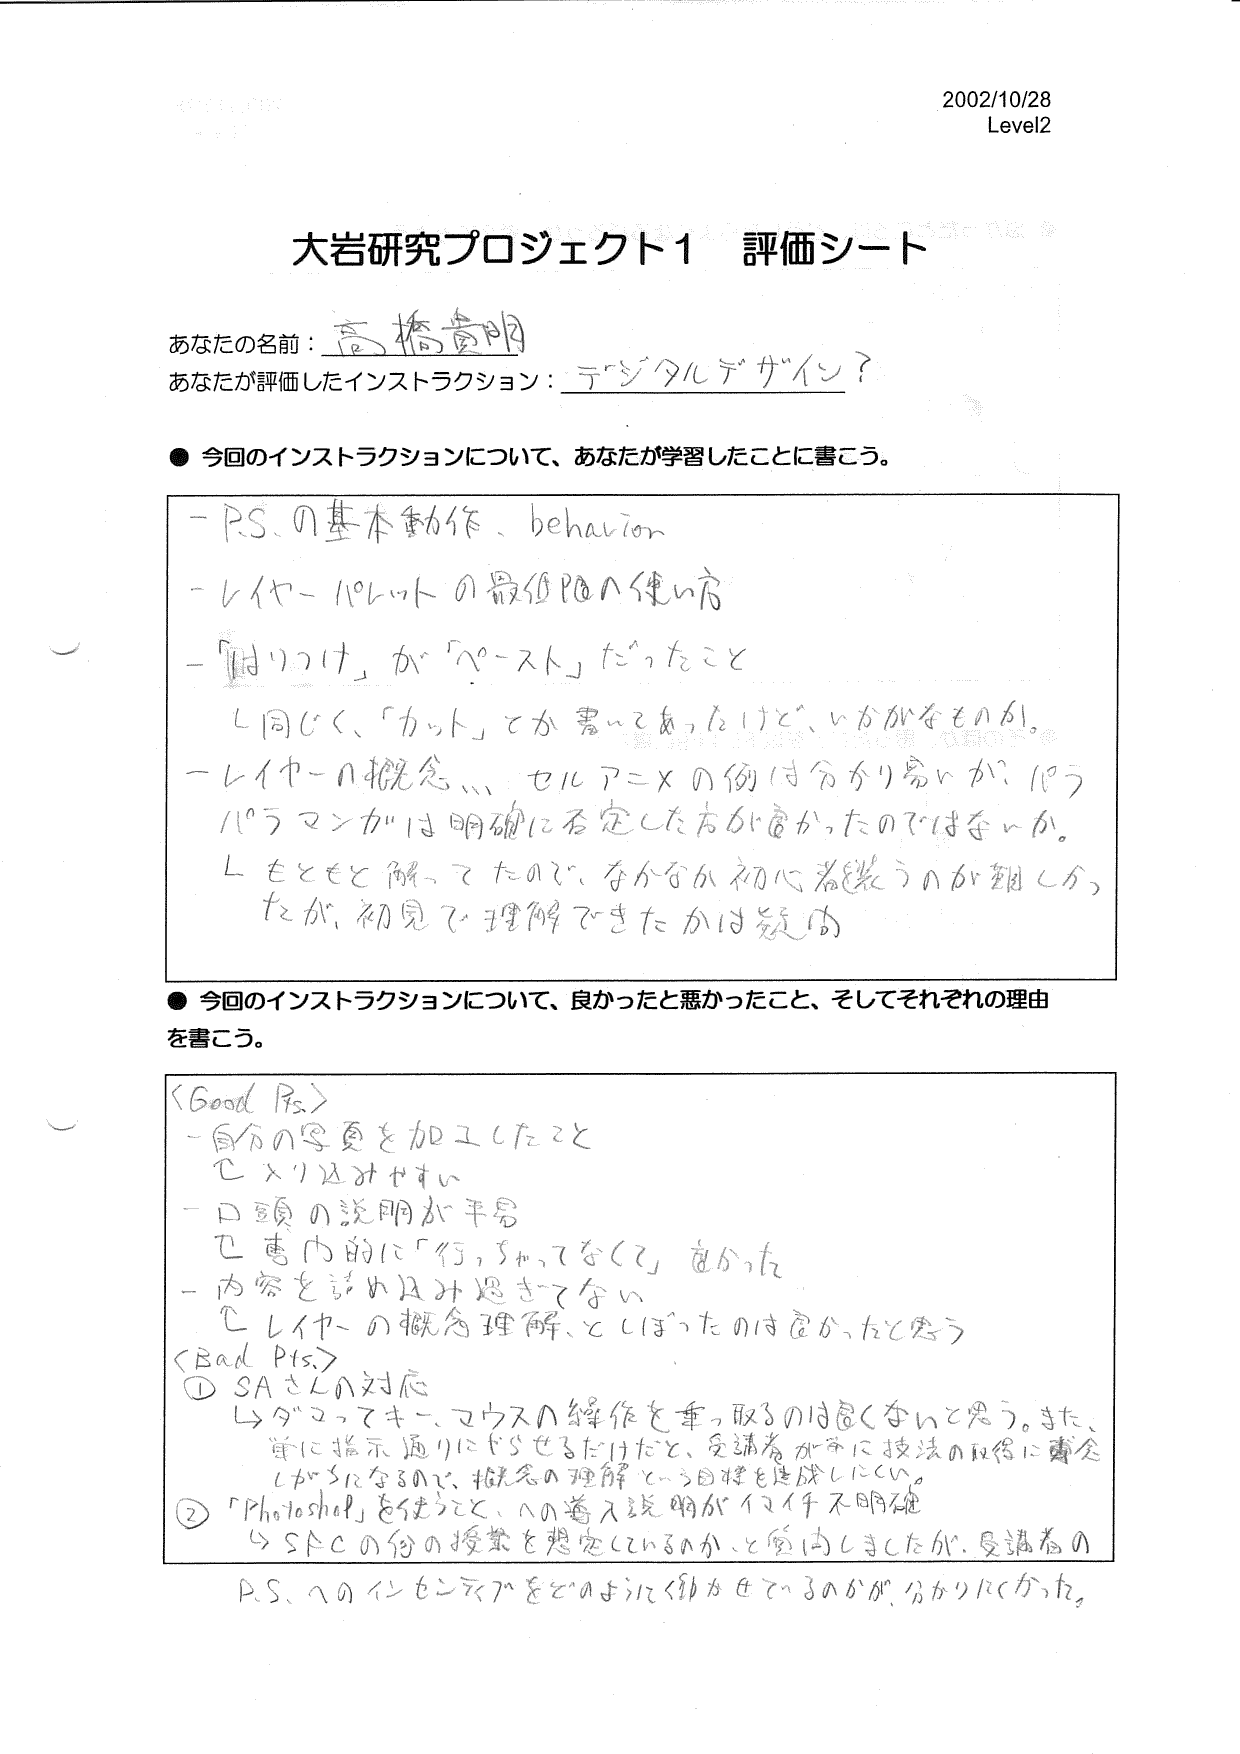 2002/10/28
Level2
大岩研究プロジェクト1 評価シート
あなたの名前：高橋貴明
あなたが評価したインストラクション：デジタルデザイン？
● 今回のインストラクションについて、あなたが学習したことに書こう。
- P.S.の基本動作、behavior
- レイヤーパレットの最低限の使い方
- 「はりつけ」が「ペースト」だったこと
└ 同じく、「カット」とか書いてあったけど、いかがなものか。
- レイヤーの概念... セルアニメの例は分かり易いが、パラ
パラマンガは明確に否定した方が良かったのではないか。
└ もともと解ってたので、なかなか初心者装うのが難しかっ
たが、初見で理解できたかは疑問
● 今回のインストラクションについて、良かったと悪かったこと、そしてそれぞれの理由
を書こう。
<Good Pts.>
- 自分の写真を加工したこと
入り込みやすい
- 口頭の説明が平易
専門的に「行っちゃってなくて」良かった
- 内容を詰め込み過ぎてない
レイヤーの概念理解、としぼったのは良かったと思う
<Bad Pts.>
① SAさんの対応
↳ ダマってキー、マウスの操作を乗っ取るのは良くないと思う。また、
単に指示通りにやらせるだけだと、受講者が単に技法の取得に専念
しがちになるので、概念の理解という目標を達成しにくい。
② 「Photoshop」を使うこと、への導入説明がイマイチ不明確
↳ SFCの何の授業を想定しているのか、と質問しましたが、受講者の
P.S.へのインセンティブをどのように働かせているのかが、分かりにくかった。